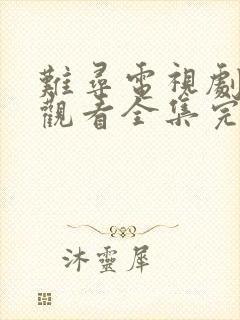 難尋電視劇
觀看全集完
沐靈犀